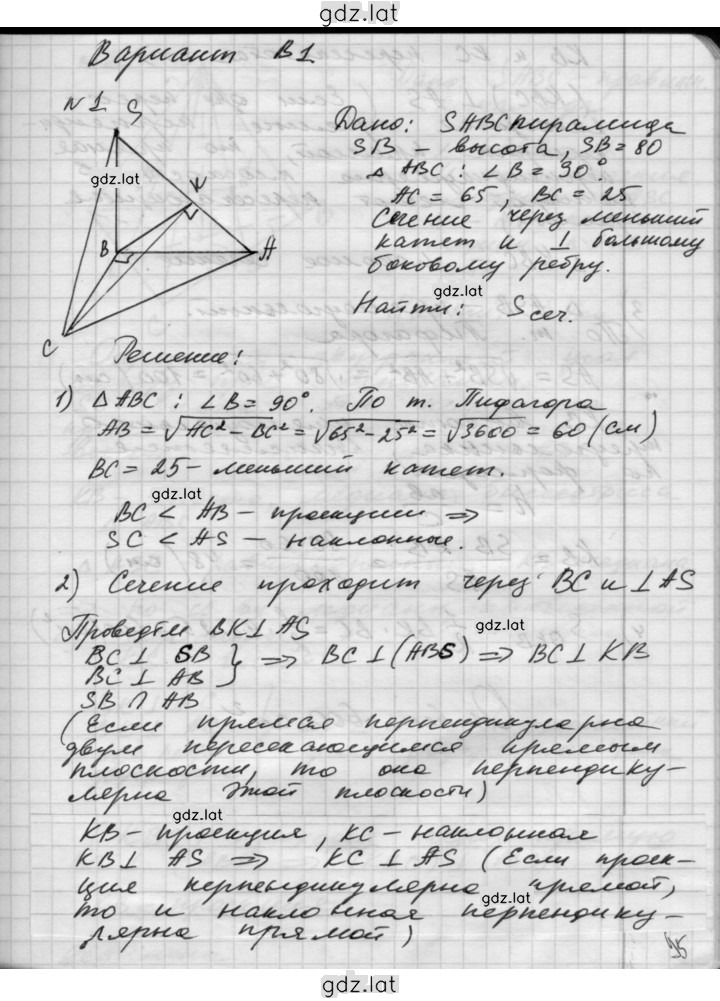 gdz.lat
Вариант В1
N1
S
K
B
A
C
gdz.lat
Дано: SABC пирамида
SB – высота, SB = 80
△ ABC : ∠B = 90°
AC = 65, BC = 25
Сечение через меньший
катет и ⊥ большому
боковому ребру.
gdz.lat
Найти: Sсеч.
Решение:
1) △ ABC : ∠B = 90°. По т. Пифагора
AB = √AC² – BC² = √65² – 25² = √3600 = 60 (см)
BC = 25 – меньший катет.
gdz.lat
BC < AB – проекции ⇒
SC < AS – наклонные.
2) Сечение проходит через BC и ⊥ AS
gdz.lat
Проведём BK ⊥ AS
BC ⊥ SB } ⇒ BC ⊥ (ABS) ⇒ BC ⊥ KB
BC ⊥ AB
SB ∩ AB
(Если прямая перпендикулярна
двум пересекающимся прямым
плоскости, то она перпендику-
лярна этой плоскости)
gdz.lat
KB – проекция, KC – наклонная
KB ⊥ AS ⇒ KC ⊥ AS (Если проек-
ция перпендикулярна прямой,
то и наклонная перпендику-
лярна прямой)
95
gdz.lat